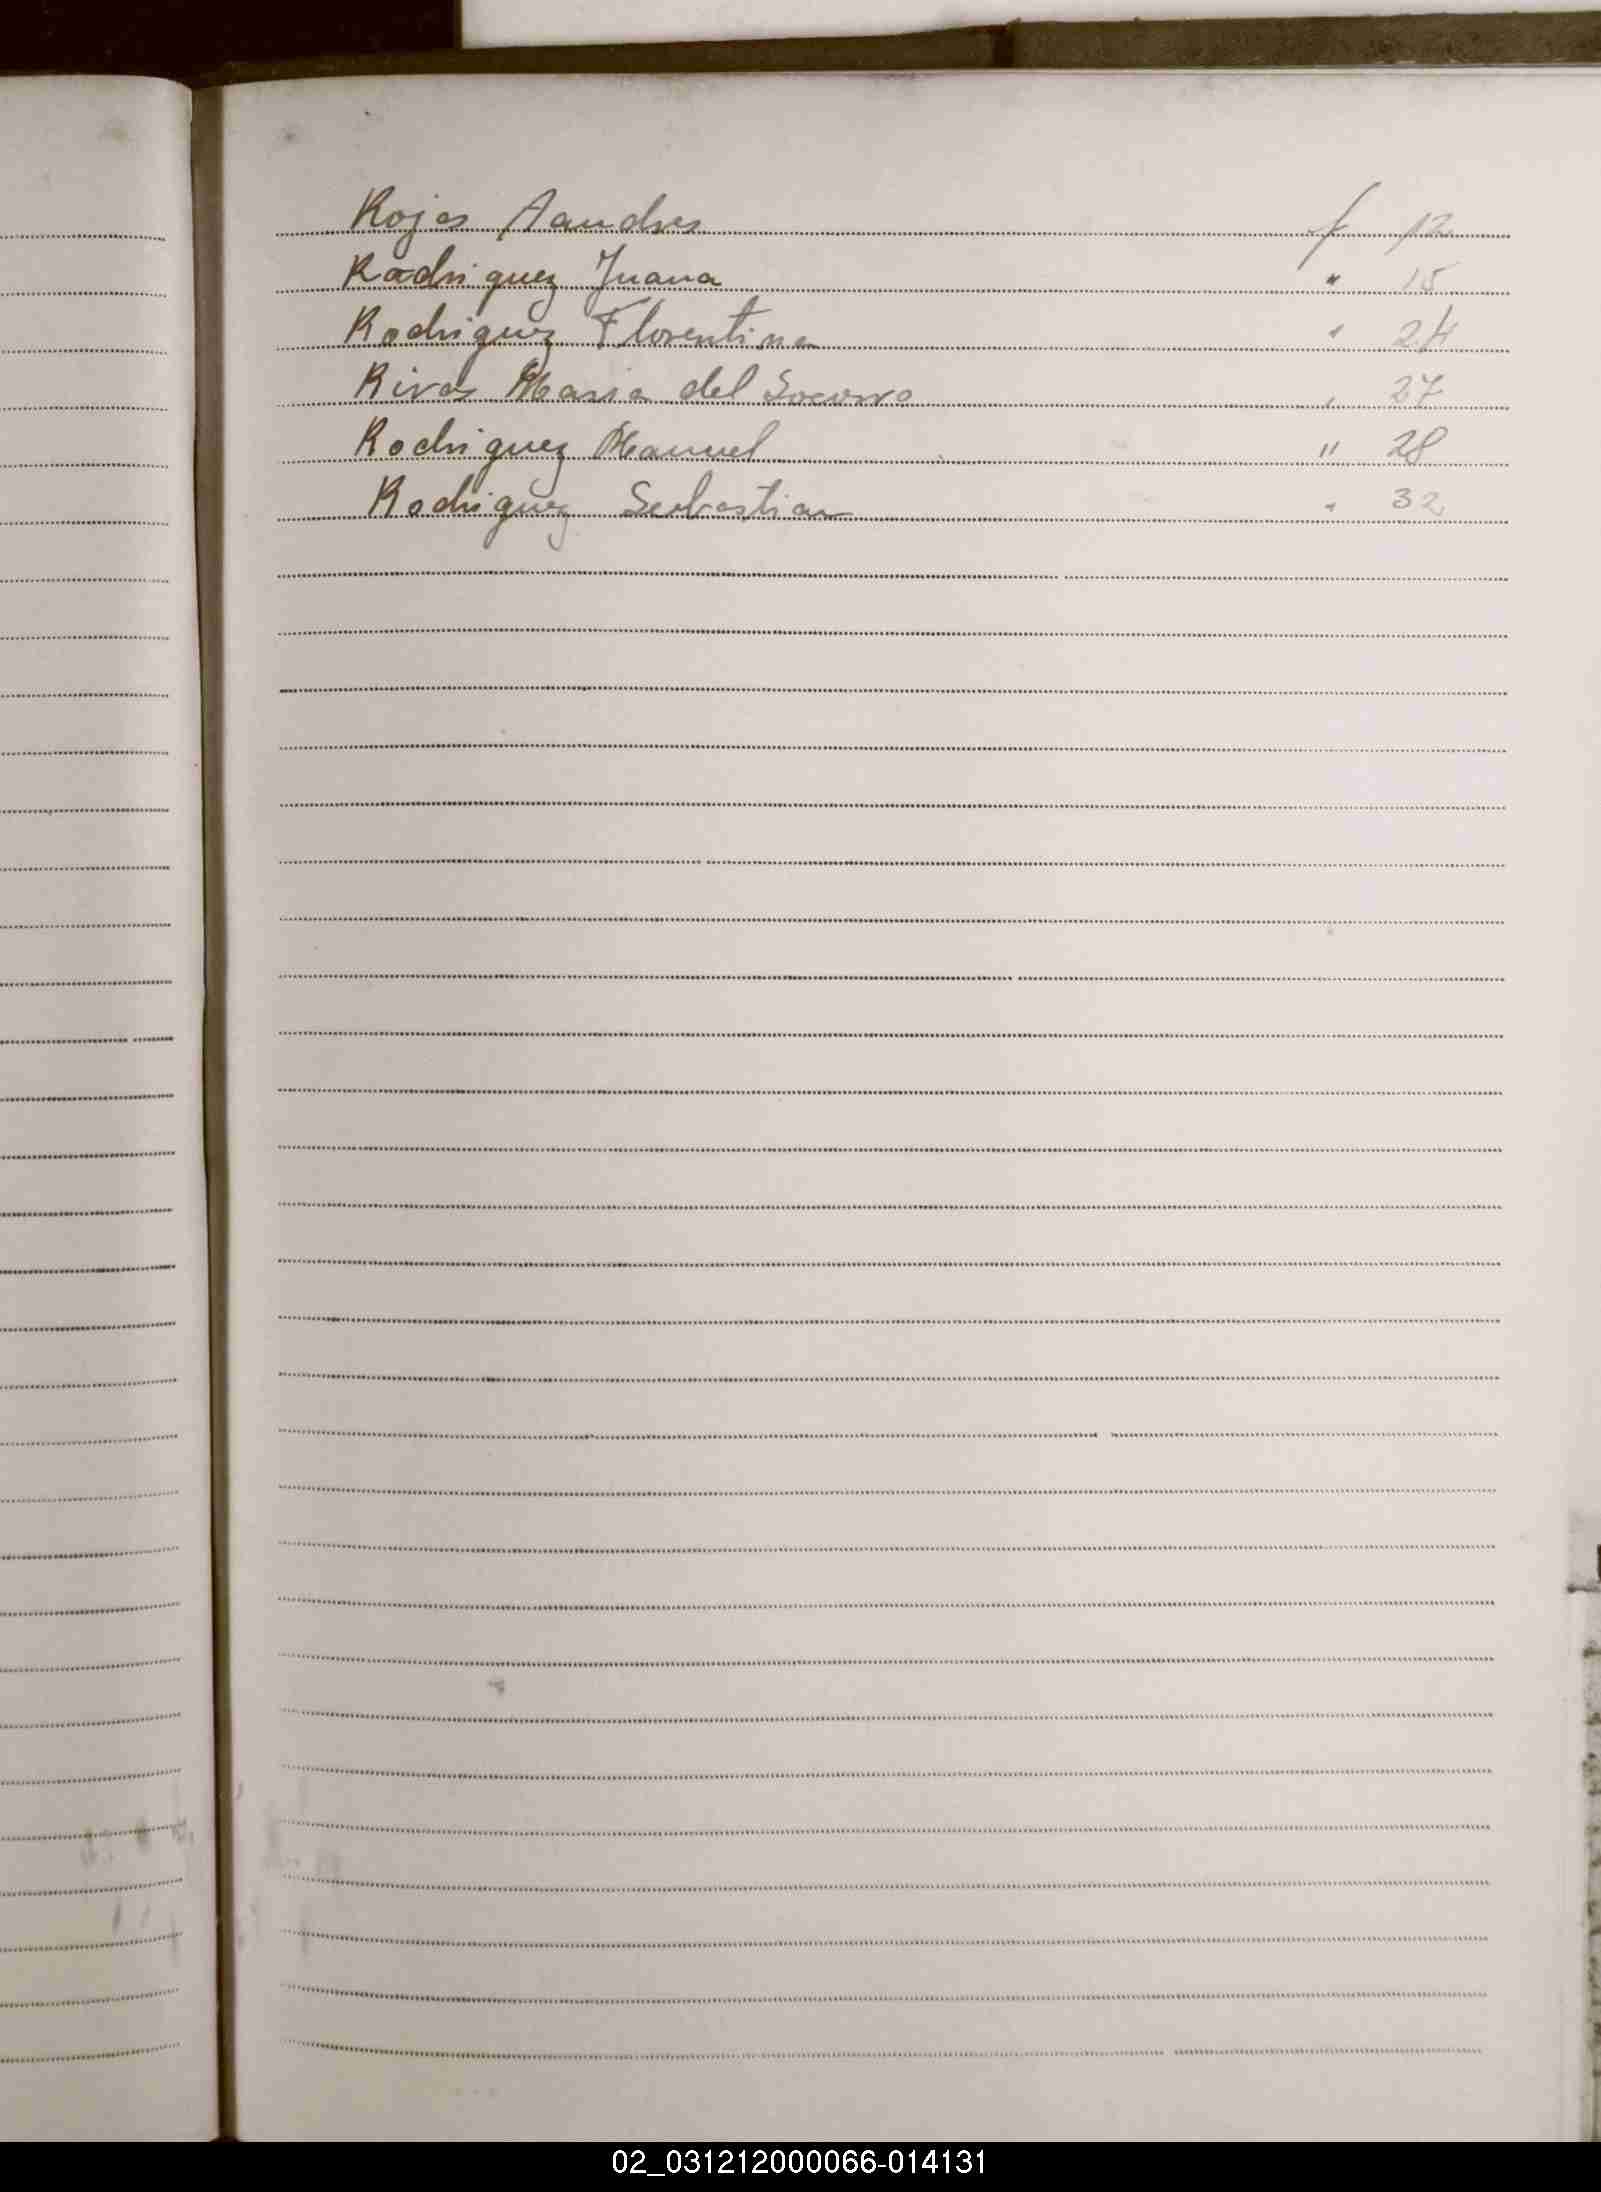 Rojas Aandres f 12
Rodriguez Juana " 15
Rodriguez Florentina " 24
Rivas Maria del Socorro " 27
Rodriguez Manuel " 28
Rodriguez Sebastian " 32
02_031212000066-014131